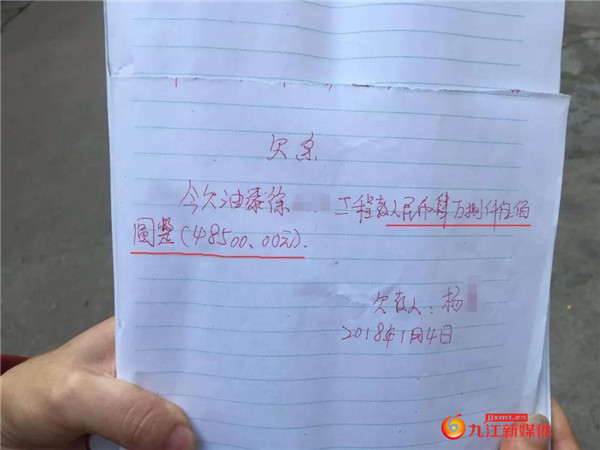 欠条
今欠油漆徐 工程款人民币肆万捌仟伍佰
圆整(48500.00元).
欠款人:杨
2018年1月4日
jjxmt.cn
九江新媒体